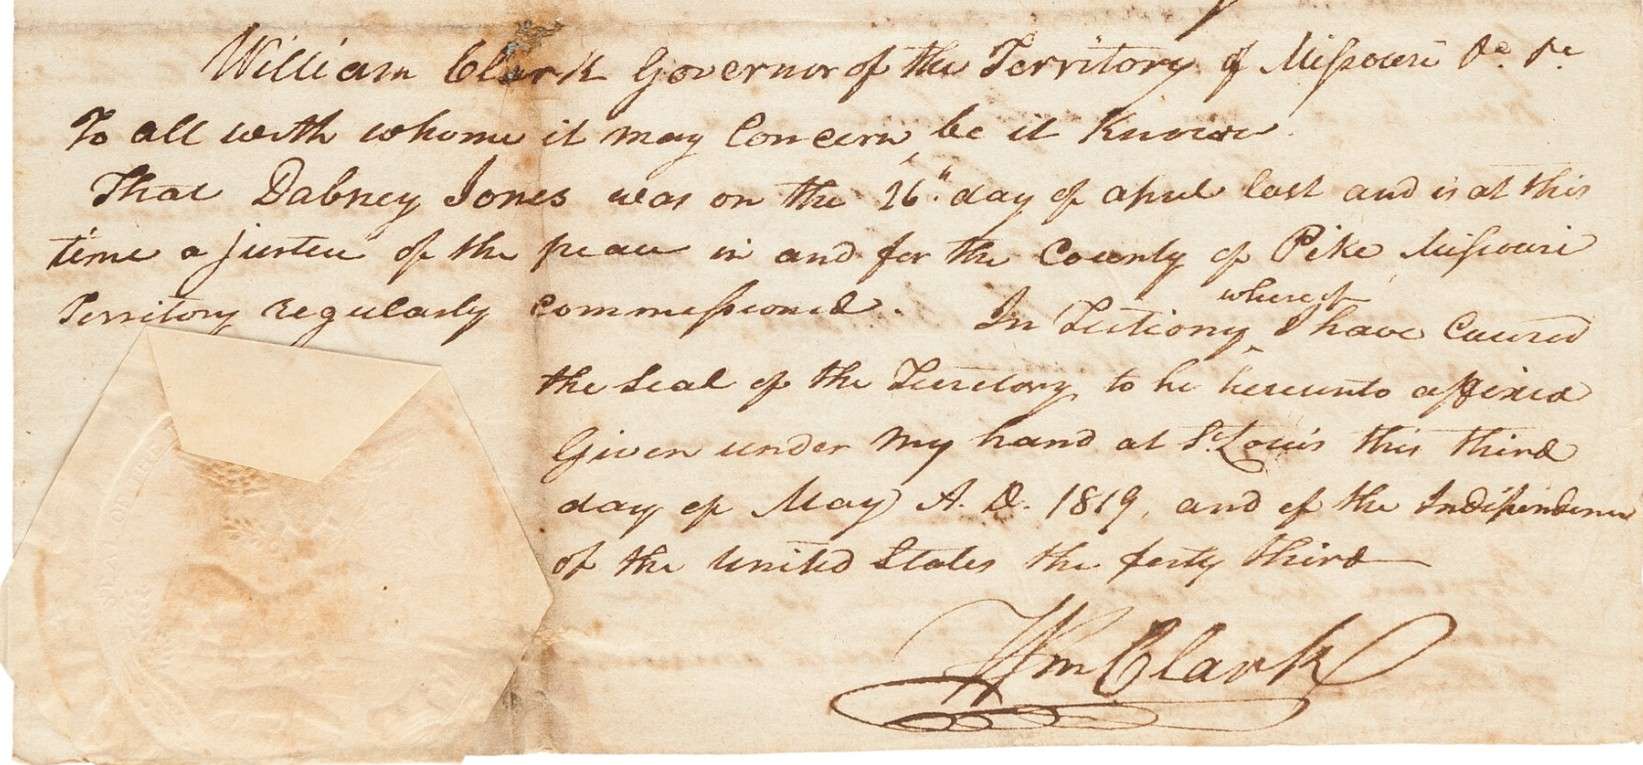 William Clark Governor of the Territory of Missouri &c. &c
To all with whome it may Concern, be it Known
That Dabney Jones was on the 26th. day of april last and is at this
time a justice of the peace in and for the County of Pike Missouri
Territory regularly commissioned. In Testiony whereof I have Caused
the Seal of the Territory to be hereunto affixed
Given under my hand at St. Louis this third
day of May A.D. 1819, and of the Independence
of the United States the forty third
Wm Clark